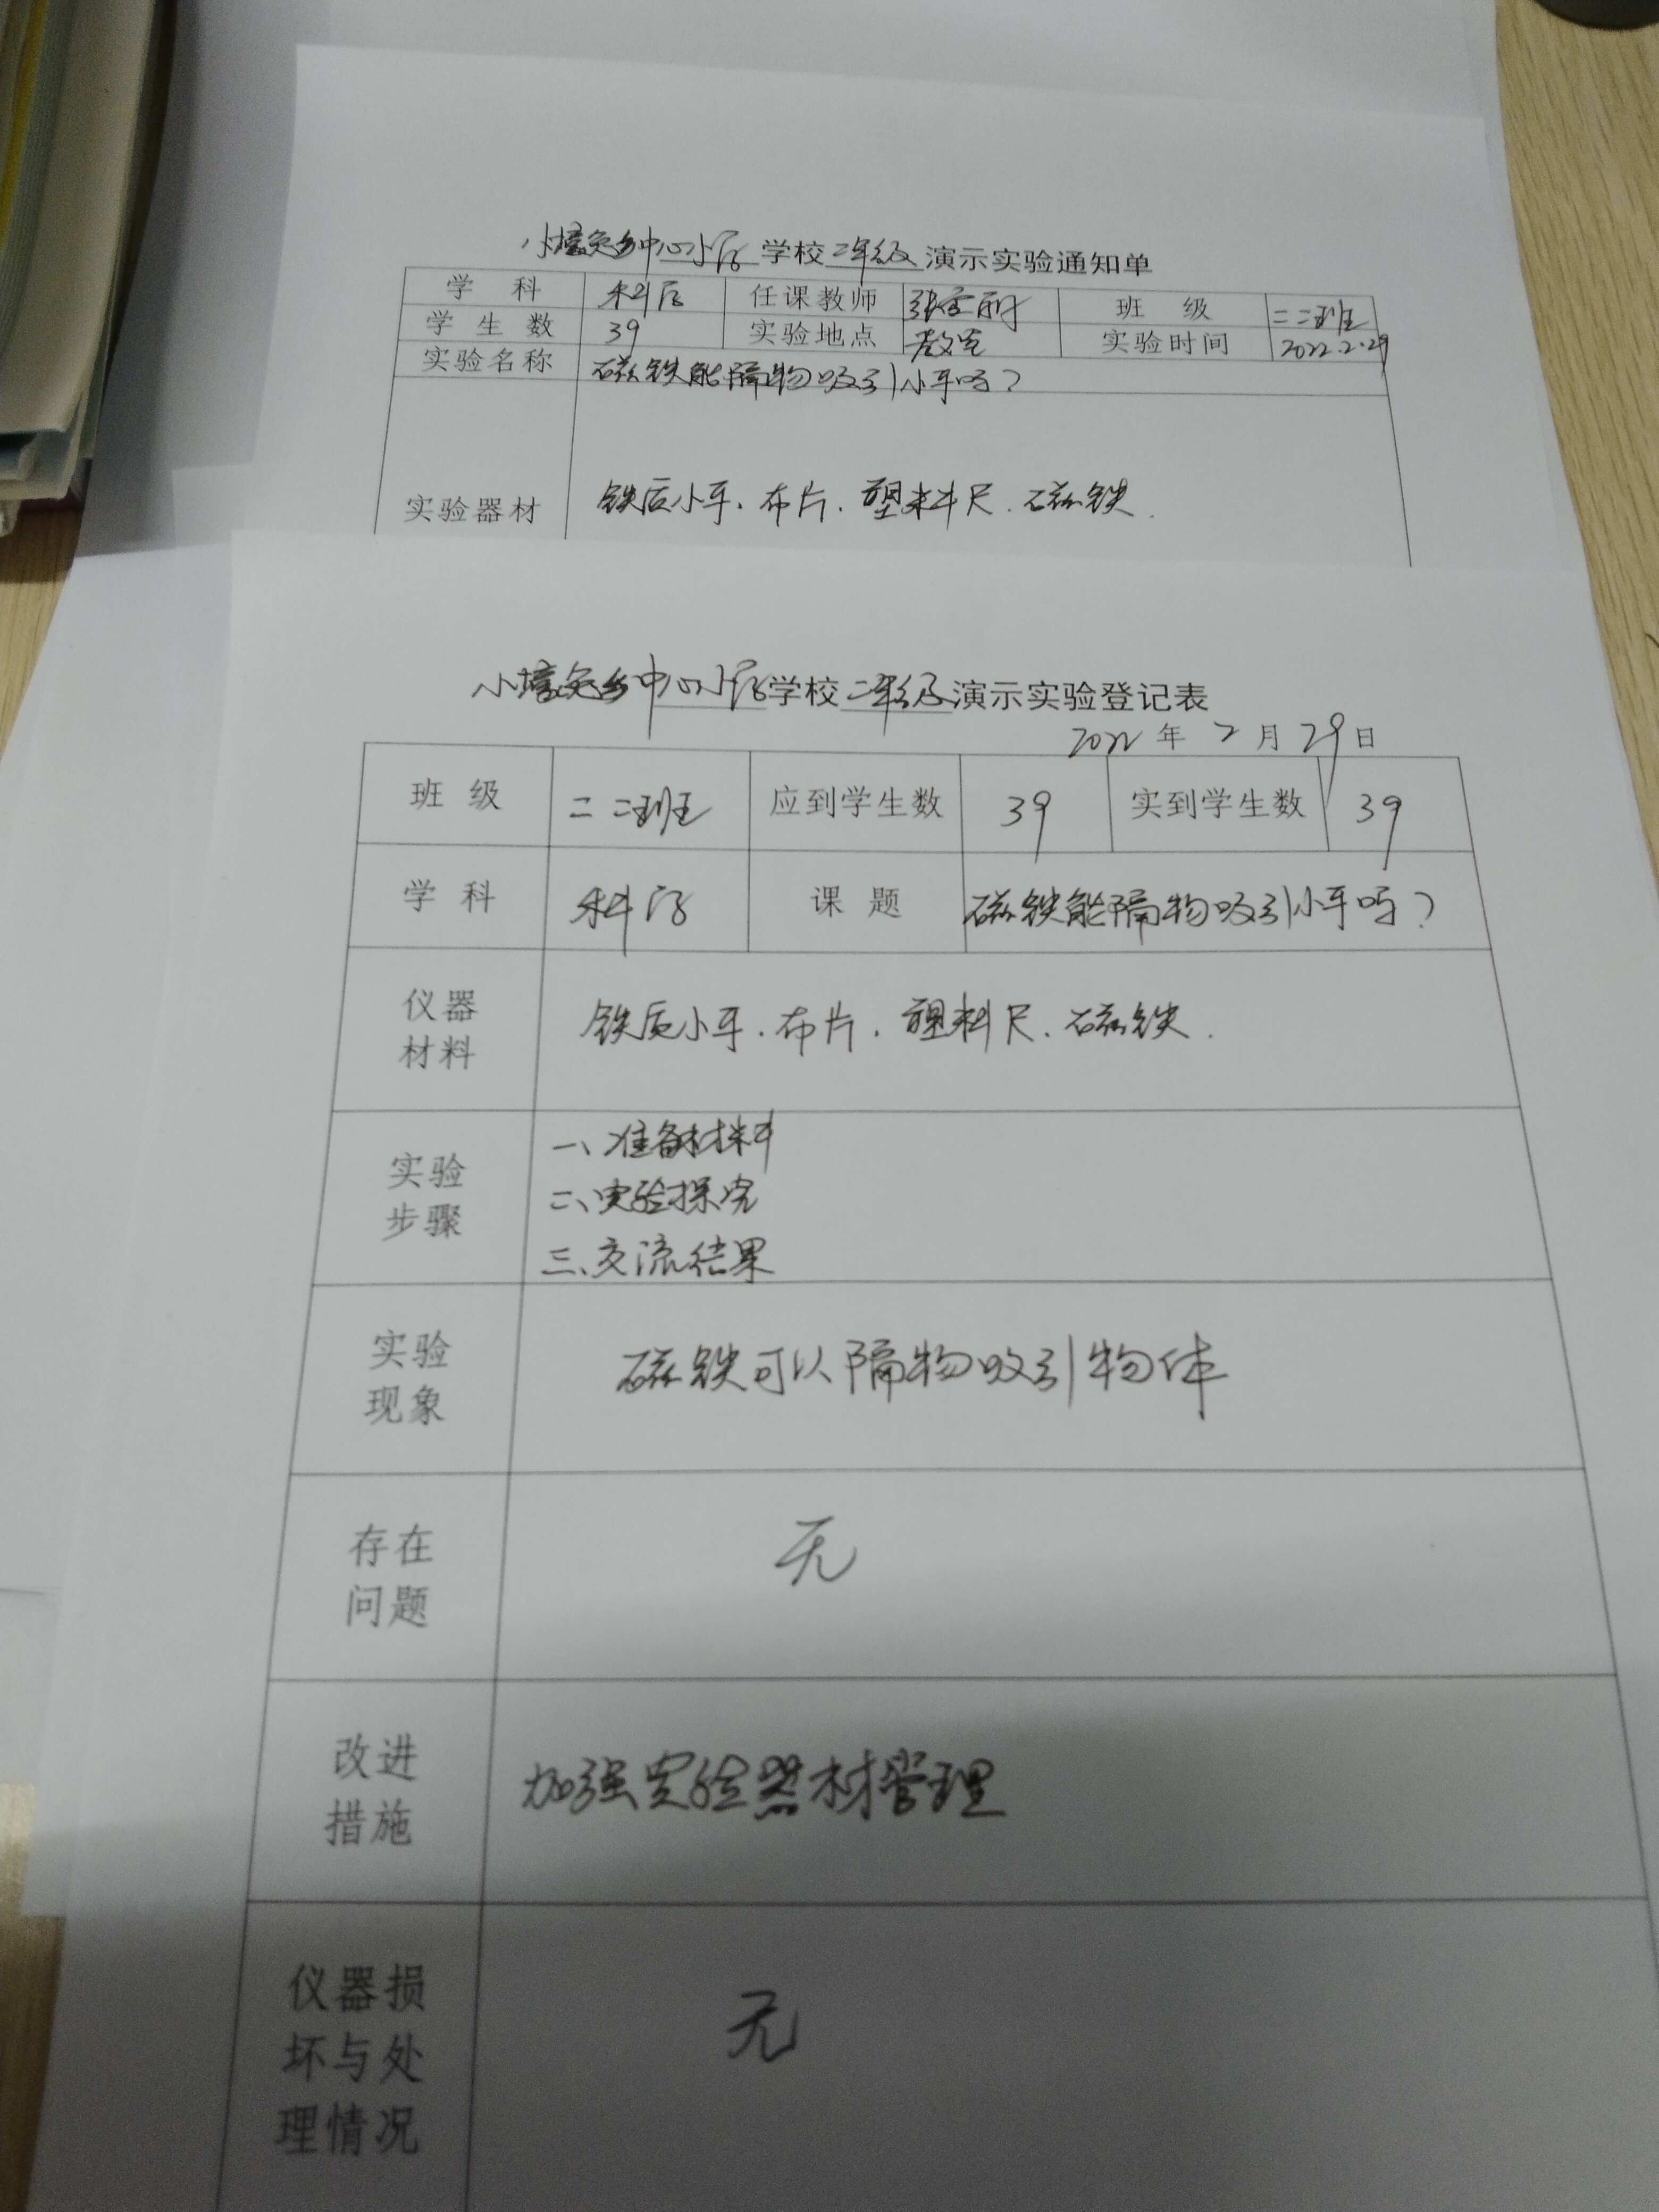 小坛免乡中心小学 学校 二年级 演示实验通知单
学 科 科学 任课教师 张雪丽 班 级 二二班
学 生 数 39 实验地点 教室 实验时间 2022.2.29
实验名称 磁铁能隔物吸引小车吗？
实验器材 铁质小车、布片、塑料尺、磁铁.
中心小学 学校 二年级 演示实验登记表
2022 年 2 月 29 日
班 级 二二班 应到学生数 39 实到学生数 39
学 科 科学 课 题 磁铁能隔物吸引小车吗？
仪器
材料
铁质小车、布片、塑料尺、磁铁.
实验
步骤
一、准备材料
二、实验探究
三、交流结果
实验
现象
磁铁可以隔物吸引物体
存在
问题
无
改进
措施
加强实验器材管理
仪器损
坏与处
理情况
无